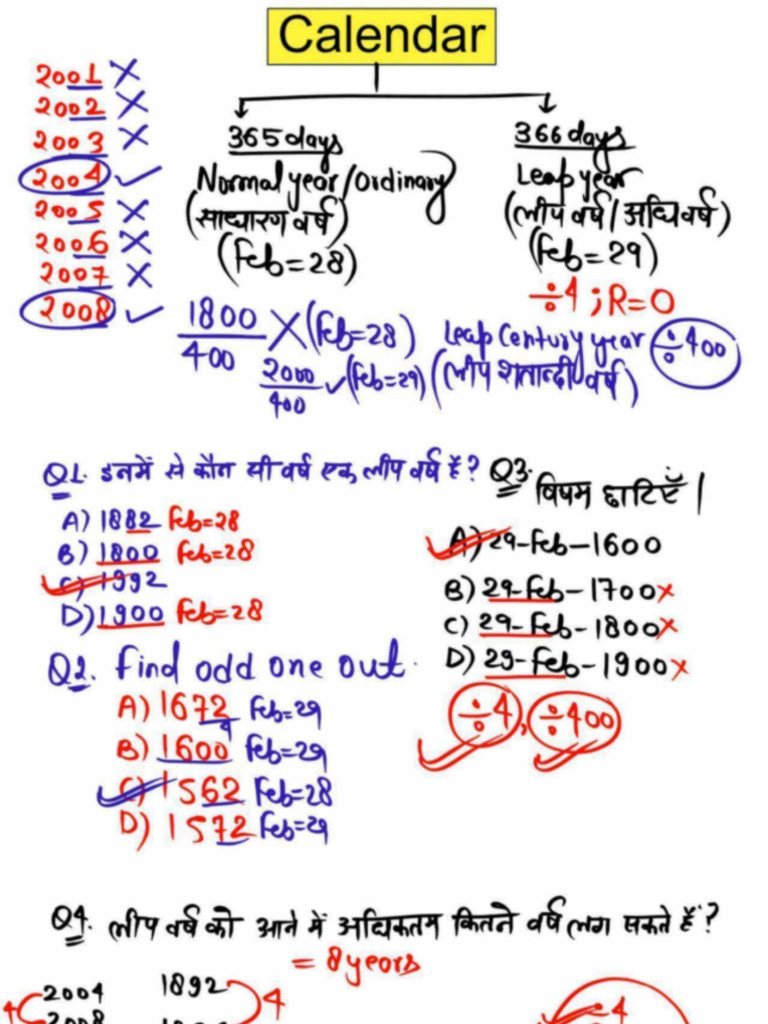 Calendar
2001 X
2002 X
2003 X
2004 ✓
2005 X
2006 X
2007 X
2008 ✓
365 days
Normal year / Ordinary
(साधारण वर्ष)
(Feb = 28)
366 days
Leap year
(लीप वर्ष / अधिवर्ष)
(Feb = 29)
÷4 ; R = 0
1800/400 X (Feb = 28)
Leap Century year ÷400
2000/400 ✓ (Feb = 29) (लीप शताब्दी वर्ष)
Q1. इनमें से कौन सी वर्ष एक लीप वर्ष हैं?
A) 1882 Feb = 28
B) 1800 Feb = 28
C) 1992
D) 1900 Feb = 28
Q2. Find odd one out.
A) 1672 Feb = 29
B) 1600 Feb = 29
C) 1562 Feb = 28
D) 1572 Feb = 29
Q3. विषम छाटिएँ |
A) 29-Feb-1600
B) 29-Feb-1700 x
C) 29-Feb-1800 x
D) 29-Feb-1900 x
÷4, ÷400
Q4. लीप वर्ष को आने में अधिकतम कितने वर्ष लग सकते हैं?
= 8 years
4 2004
2008
1892 4
4